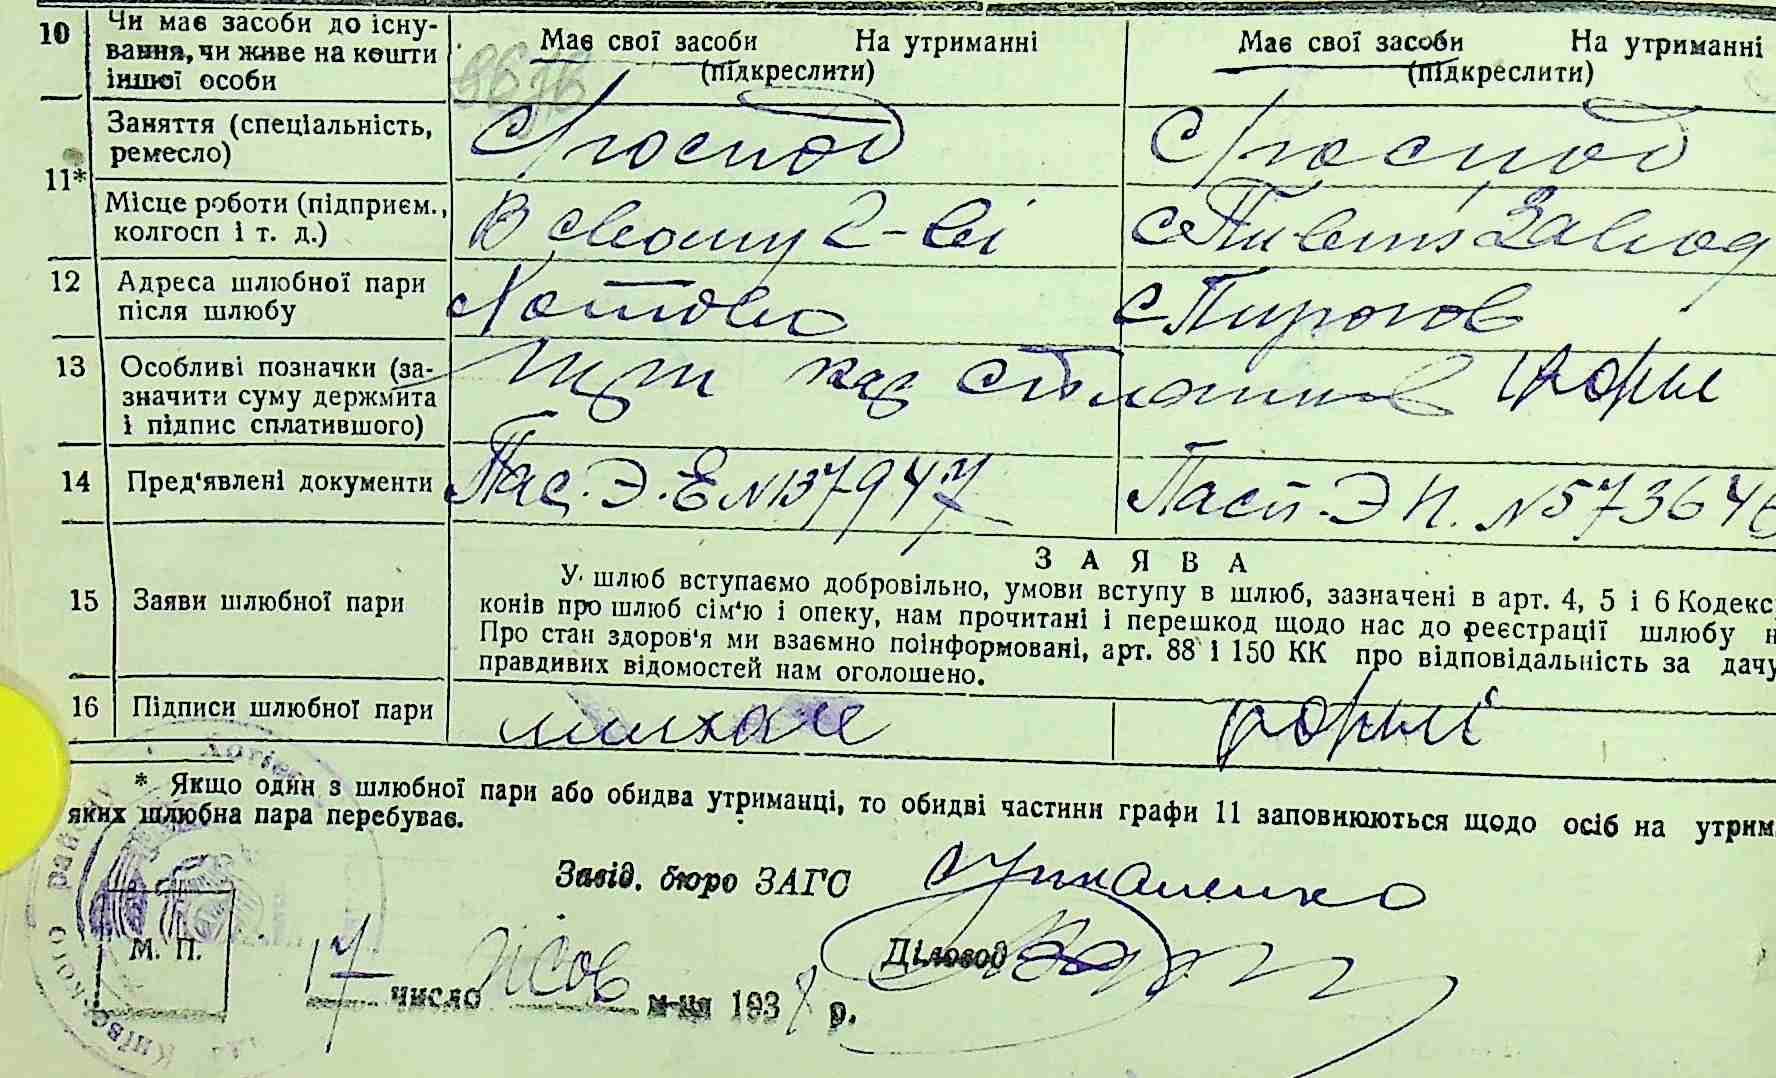 10 Чи має засоби до існу-
вання, чи живе на кошти
іншої особи
Має свої засоби На утриманні
(підкреслити)
Має свої засоби На утриманні
(підкреслити)
11* Заняття (спеціальність,
ремесло)
С/господ
С/господ
Місце роботи (підприєм.,
колгосп і т. д.)
В своему г-ві
Завод
12 Адреса шлюбної пари
після шлюбу
Хотово
с Пирогов
13 Особливі позначки (за-
значити суму держмита
і підпис сплатившого)
три кар
14 Пред'явлені документи
Пас. Э. Е N 137947
Пасп. Э П. N 573646
З А Я В А
15 Заяви шлюбної пари
У шлюб вступаємо добровільно, умови вступу в шлюб, зазначені в арт. 4, 5 і 6 Кодекс
конів про шлюб сім'ю і опеку, нам прочитані і перешкод щодо нас до реєстрації шлюбу н
Про стан здоров'я ми взаємно поінформовані, арт. 88 і 150 КК про відповідальність за дачу
правдивих відомостей нам оголошено.
16 Підписи шлюбної пари
* Якщо один з шлюбної пари або обидва утриманці, то обидві частини графи 11 заповнюються щодо осіб на утрим
яких шлюбна пара перебуває.
Завід. бюро ЗАГС
М. П.
Діловод
17 число м-ця 193 р.